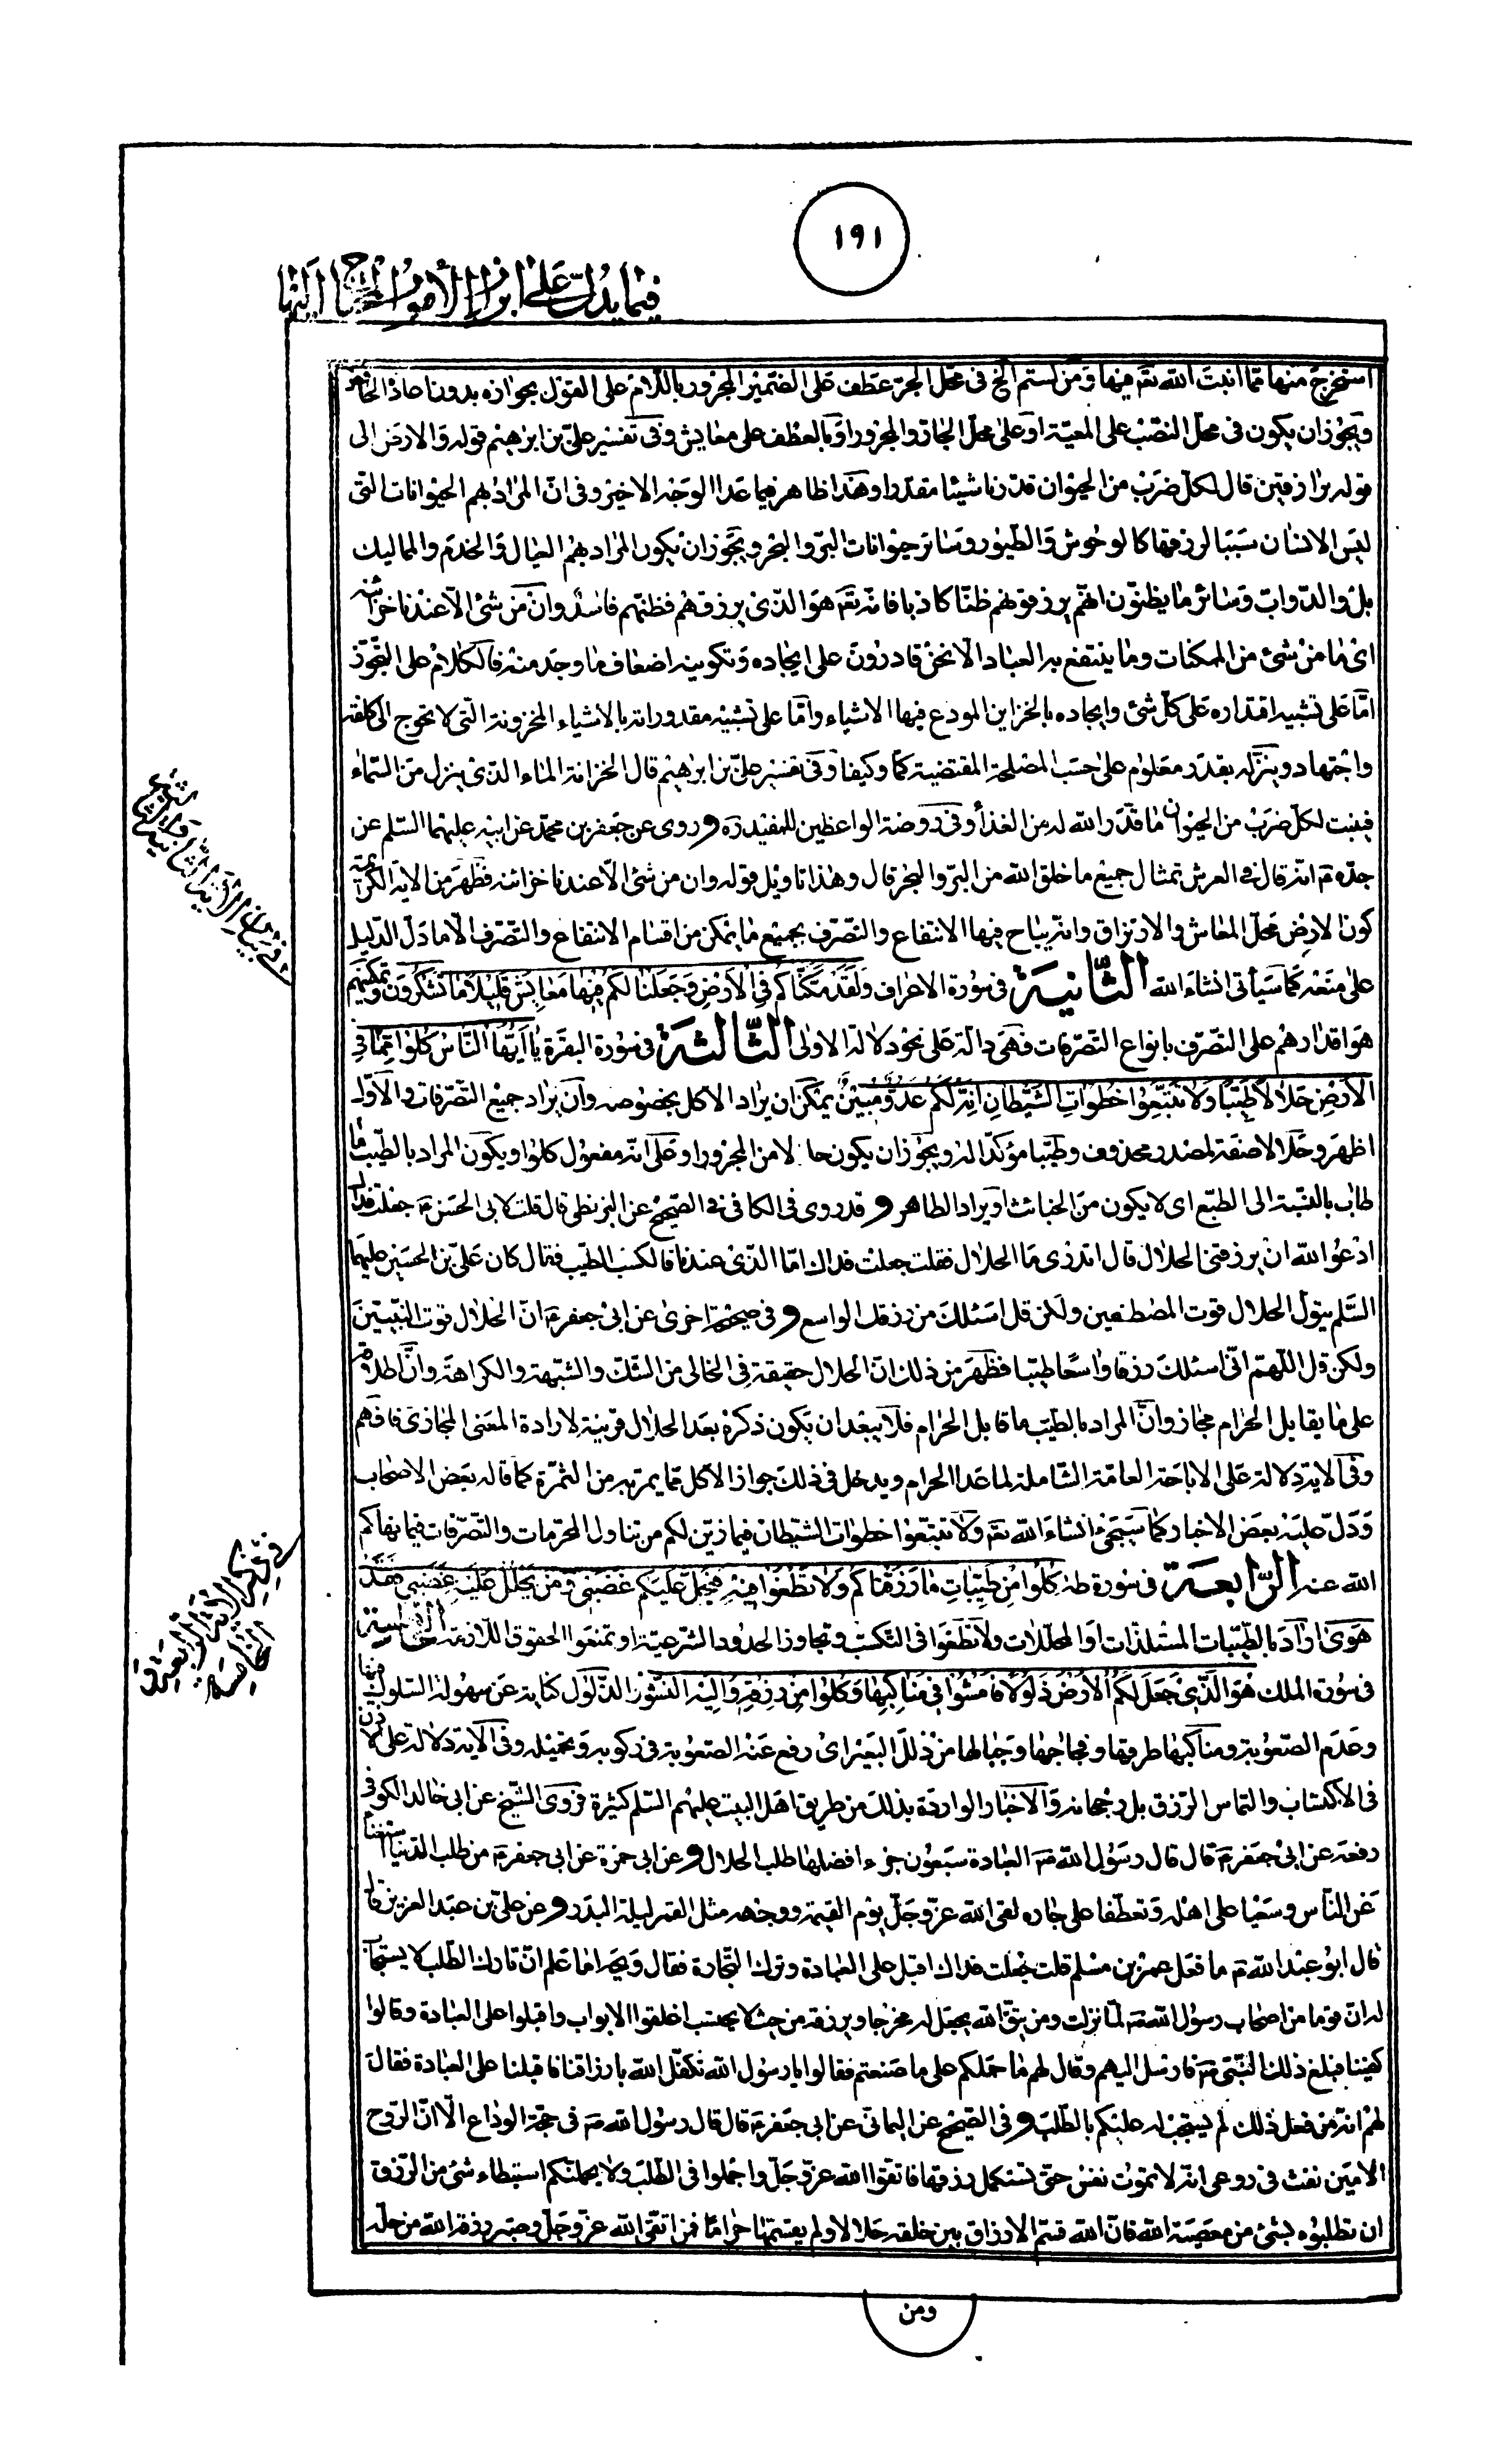 ١٩١
فيما يدل على ابراز الأمور المحتاج اليها
استخرج منها مما انبت الله تعَ فيها ومن لستم الخ فى محل الجر عطف على الضمير المجرور باللام على القول بجوازه بدون اعاذ الخافض
ويجوز ان يكون فى محل النصب على المعية او على محل الجار والمجرور او بالعطف على معايش وفى تفسير علي بن ابرهيم قوله والارض الى
قوله برازقين قال لكل ضرب من الحيوان قدرنا شيئا مقدرا وهذا ظاهر فيما عدا الوجه الاخير وفى ان المراد بهم الحيوانات التى
ليس الانسان سببا لرزقها كالوحوش والطيور وسائر حيوانات البر والبحر ويجوز ان يكون المراد بهم العيال والخدم والمماليك
بل والدواب وسائر ما يظنون انهم يرزقونهم ظنا كاذبا فانه تعَ هو الذى يرزقهم فظنهم فاسد وان من شئ الا عندنا خزائنه
اى ما من شئ من الممكنات وما ينتفع به العباد الا نحن قادرون على ايجاده وتكوينه اضعاف ما وجد منه فالكلام على التجوز
اما على تشبيه اقتداره على كل شئ وايجاده بالخزاين المودع فيها الاشياء واما على تشبيه مقدوراته بالاشياء المخزونة التى لا تحوج الى كلفة
واجتهاد وينزله بقدر معلوم على حسب المصلحة المقتضية كما وكيفا وفى تفسير علي بن ابرهيم قال الخزانة الماء الذى ينزل من السماء
فينبت لكل ضرب من الحيوان ما قدر الله له من الغذاء وفى روضة الواعظين للمفيد ره وروى عن جعفر بن محمد عن ابيه عليهما السلم عن
جده عَ انه قال فى العرش تمثال جميع ما خلق الله من البر والبحر قال وهذا تاويل قوله وان من شئ الا عندنا خزائنه فظهر من الاية الكريمة
كون الارض محل المعاش والارتزاق وانه يباح فيها الانتفاع والتصرف بجميع ما يمكن من اقسام الانتفاع والتصرف الا ما دل الدليل
على منعه كما سيأتى انشاء الله الثانية فى سورة الاعراف ولقد مكناكم فى الارض وجعلنا لكم فيها معايش قليلا ما تشكرون وتمكينهم
هو اقدارهم على التصرف بانواع التصرفات فهى دالة على نحو دلالة الاولى الثالثة فى سورة البقرة يا ايها الناس كلوا مما فى
الارض حلالا طيبا ولا تتبعوا خطوات الشيطان انه لكم عدو مبين يمكن ان يراد الاكل بخصوصه وان يراد جميع التصرفات والاول
اظهر وحلالا صفة لمصدر محذوف وطيبا مؤكدا له ويجوز ان يكون حالا من المجرور او على انه مفعول كلوا ويكون المراد بالطيب ما
طاب بالنسبة الى الطبع اى لا يكون من الخبائث او يراد الطاهر و قد روى فى الكافى فى الصحيح عن البزنطى قال قلت لابى الحسن عَ جعلت فداك
ادعوا الله ان يرزقنى الحلال قال اتدرى ما الحلال فقلت جعلت فداك اما الذى عندنا فالكسب الطيب فقال كان علي بن الحسين عليهما
السلم يقول الحلال قوت المصطفين ولكن قل اسئلك من رزقك الواسع و فى صحيحة اخرى عن ابى جعفر عَ ان الحلال قوت النبيين
ولكن قل اللهم انى اسئلك رزقا واسعا طيبا فظهر من ذلك ان الحلال حقيقة فى الخالى من الشك والشبهة والكراهة وان اطلاقه
على ما يقابل الحرام مجاز وان المراد بالطيب ما قابل الحرام فلا يبعد ان يكون ذكره بعد الحلال قرينة لارادة المعنى المجازى فافهم
وفى الاية دلالة على الاباحة العامة الشاملة لما عدا الحرام ويدخل فى ذلك جواز الاكل مما يمر به من الثمرة كما قاله بعض الاصحاب
ودل عليه بعض الاخبار كما سيجئ انشاء الله تعَ ولا تتبعوا خطوات الشيطان فيما زين لكم من تناول المحرمات والتصرفات فيما نهاكم
الله عنه الرابعة فى سورة طه كلوا من طيبات ما رزقناكم ولا تطغوا فيه فيحل عليكم غضبى ومن يحلل عليه غضبى فقد
هوى اراد بالطيبات المستلذات او المحللات ولا تطغوا فى التكسب وتجاوز الحدود الشرعية او تمنعوا الحقوق اللازمة الخامسة
فى سورة الملك هو الذى جعل لكم الارض ذلولا فامشوا فى مناكبها وكلوا من رزقه واليه النشور الذلول كناية عن سهولة السلوك فيها
وعدم الصعوبة ومناكبها طرقها وفجاجها وجبالها من ذلك البعير اى رفع عنه الصعوبة فى ركوبه وتحميله وفى الاية دلالة على الاذن
فى الاكتساب والتماس الرزق بل رجحانه والاخبار الواردة بذلك من طريق اهل البيت عليهم السلم كثيرة فروى الشيخ عن ابى خالد الكوفى
رفعه عن ابى جعفر عَ قال قال رسول الله صَ العبادة سبعون جزء افضلها طلب الحلال و عن ابى حمزة عن ابى جعفر عَ من طلب الدنيا استغناء
عن الناس وسعيا على اهله وتعطفا على جاره لقى الله عز وجل يوم القيمة ووجهه مثل القمر ليلة البدر و عن علي بن عبد العزيز قال
قال ابو عبد الله عَ ما فعل عمر بن مسلم قلت جعلت فداك اقبل على العبادة وترك التجارة فقال ويحه اما علم ان تارك الطلب لا يستجاب
له ان قوما من اصحاب رسول الله صَ لما نزلت ومن يتق الله يجعل له مخرجا ويرزقه من حيث لا يحتسب اغلقوا الابواب واقبلوا على العبادة وقالوا
كفينا فبلغ ذلك النبى صَ فارسل اليهم وقال لهم ما حملكم على ما صنعتم فقالوا يا رسول الله تكفل الله بارزاقنا فاقبلنا على العبادة فقال
لهم انه من فعل ذلك لم يستجب له عليكم بالطلب و فى الصحيح عن الثمالى عن ابى جعفر عَ قال قال رسول الله صَ فى حجة الوداع الا ان الروح
الامين نفث فى روعى انه لا تموت نفس حتى تستكمل رزقها فاتقوا الله عز وجل واجملوا فى الطلب ولا يحملنكم استبطاء شئ من الرزق
ان تطلبوه بشئ من معصية الله فان الله قسم الارزاق بين خلقه حلالا ولم يقسمها حراما فمن اتقى الله عز وجل وصبر رزقه الله من حله
ومن
فى بيان الآية الثانية والثالثة
فى ذكر الآية الرابعة و
الخامسة